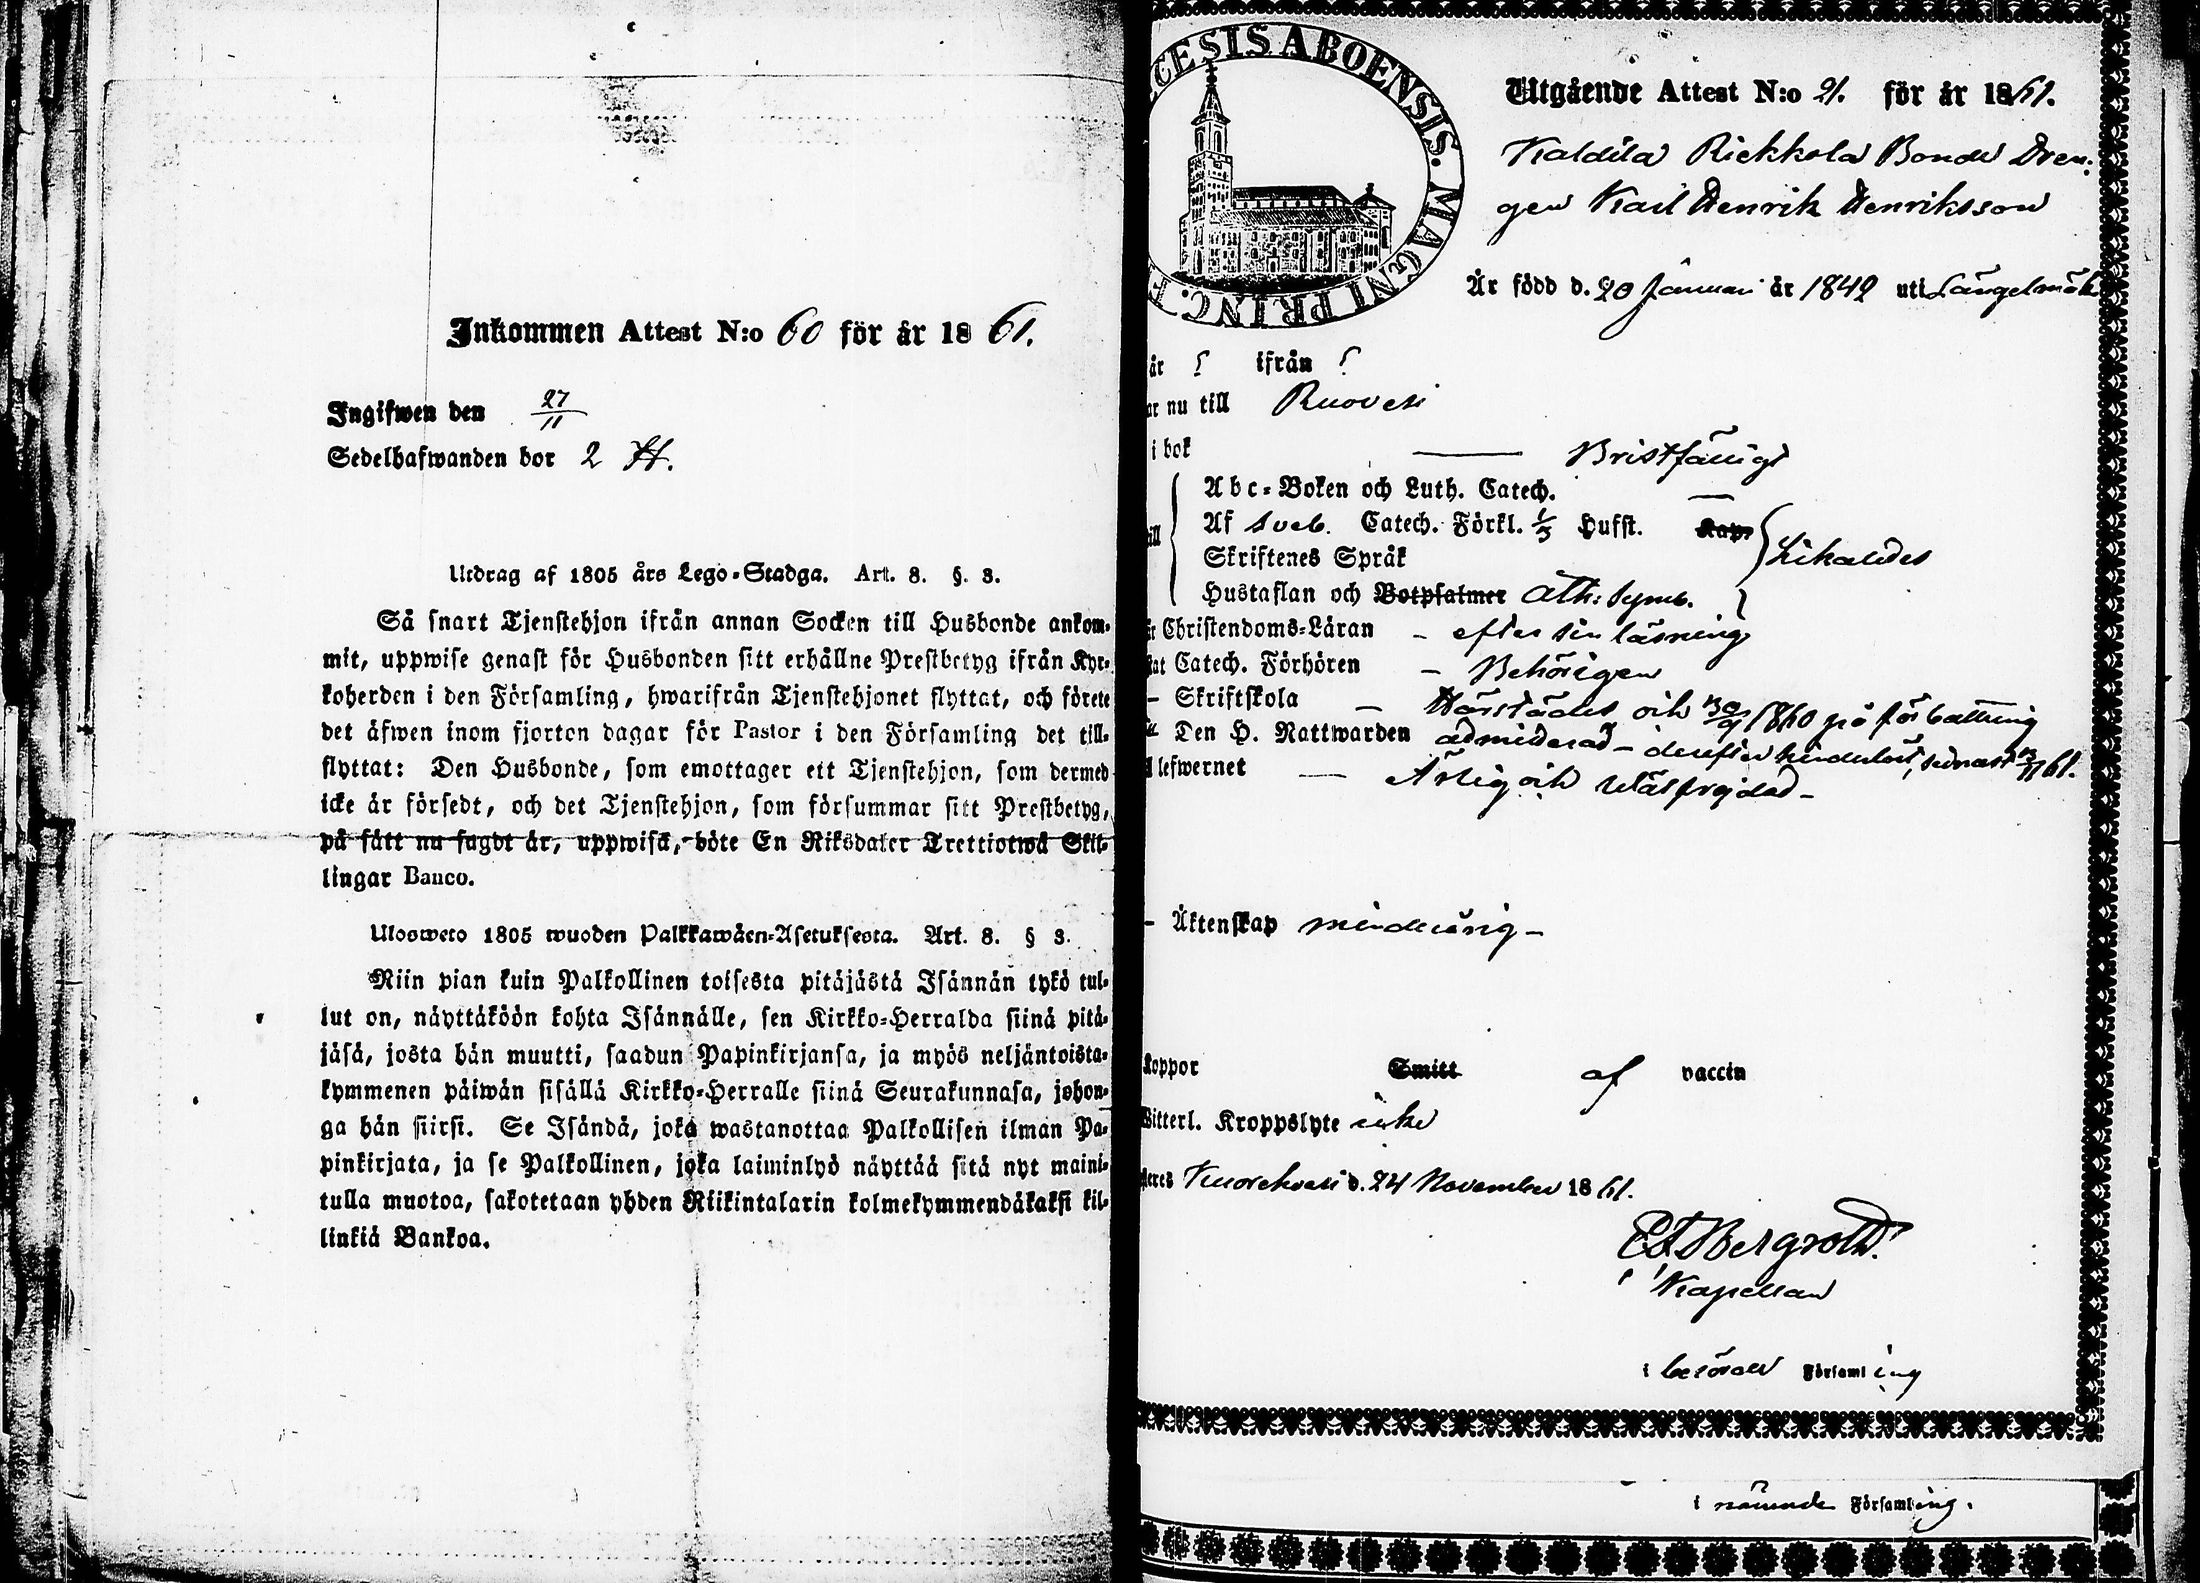 Inkommen Attest N:o 60 för år 1861.
Ingifwen den 27/11
Sedelhafwanden bor 2
Utdrag af 1805 års Lego-Stadga. Art. 8. §. 3.
Så snart Tjenstehjon ifrån annan Socken till Husbonde ankom-
mit, uppwise genast för Husbonden sitt erhållne Prestbetyg ifrån Kyr-
koherden i den Församling, hwarifrån Tjenstehjonet flyttat, och förete
det äfwen inom fjorton dagar för Pastor i den Församling det till-
flyttat: Den Husbonde, som emottager ett Tjenstehjon, som dermed
icke är försedt, och det Tjenstehjon, som försummar sitt Prestbetyg,
på sätt nu sagdt är, uppwisa, böte En Riksdaler Trettiotwå Skil-
lingar Banco.
Ulosweto 1805 wuoden Palkkawäen-Asetuksesta. Art. 8. § 3.
Niin pian kuin Palkollinen toisesta pitäjästä Isännän tykö tul-
lut on, näyttäköön kohta Isännälle, sen Kirkko-Herralda siinä pitä-
jäsä, josta hän muutti, saadun Papinkirjansa, ja myös neljäntoista-
kymmenen päiwän sisällä Kirkko-Herralle siinä Seurakunnasa, johon-
ga hän siirsi. Se Isändä, joka wastanottaa Palkollisen ilman Pa-
pinkirjata, ja se Palkollinen, joka laiminlyö näyttää sitä nyt maini-
tulla muotoa, sakotetaan yhden Riikintalarin kolmekymmendäkaksi kil-
linkiä Bankoa.
CESIS ABOENSIS. MAGNI PRINC. F
Utgående Attest N:o 21. för år 1861.
Kaldila Riekkola Bonde Dren-
gen Karl Henrik Henriksson
Är född d. 20 Januari år 1842 uti Längelmäki
år ? ifrån ?
ar nu till Ruovesi
i bok — Bristfälligt
Abc-Boken och Luth. Catech.
ill Af Sveb. Catech. Förkl. 1/3 Hufst. Kap.
Skriftenes Språk Likaledes
Hustaflan och Botpsalmer Ath: Symb.
Christendoms-Läran - efter sin läsning
Catech. Förhören - Behörigen
- Skriftskola - Härstädes och 30/9 1860 på förbättring
Den H. Nattwarden admitterad - derefter hinderlöst, sednast 61.
lefwernet — Ärlig och wälfrejdad -
- Äktenskap minderårig -
koppor Smitt af vaccin
Witterl. Kroppslyte icke
teres Kuorehvesi d. 24 November 1861.
Bergroth.
Kapellan
i berörde Församling
i nämnde Församling.